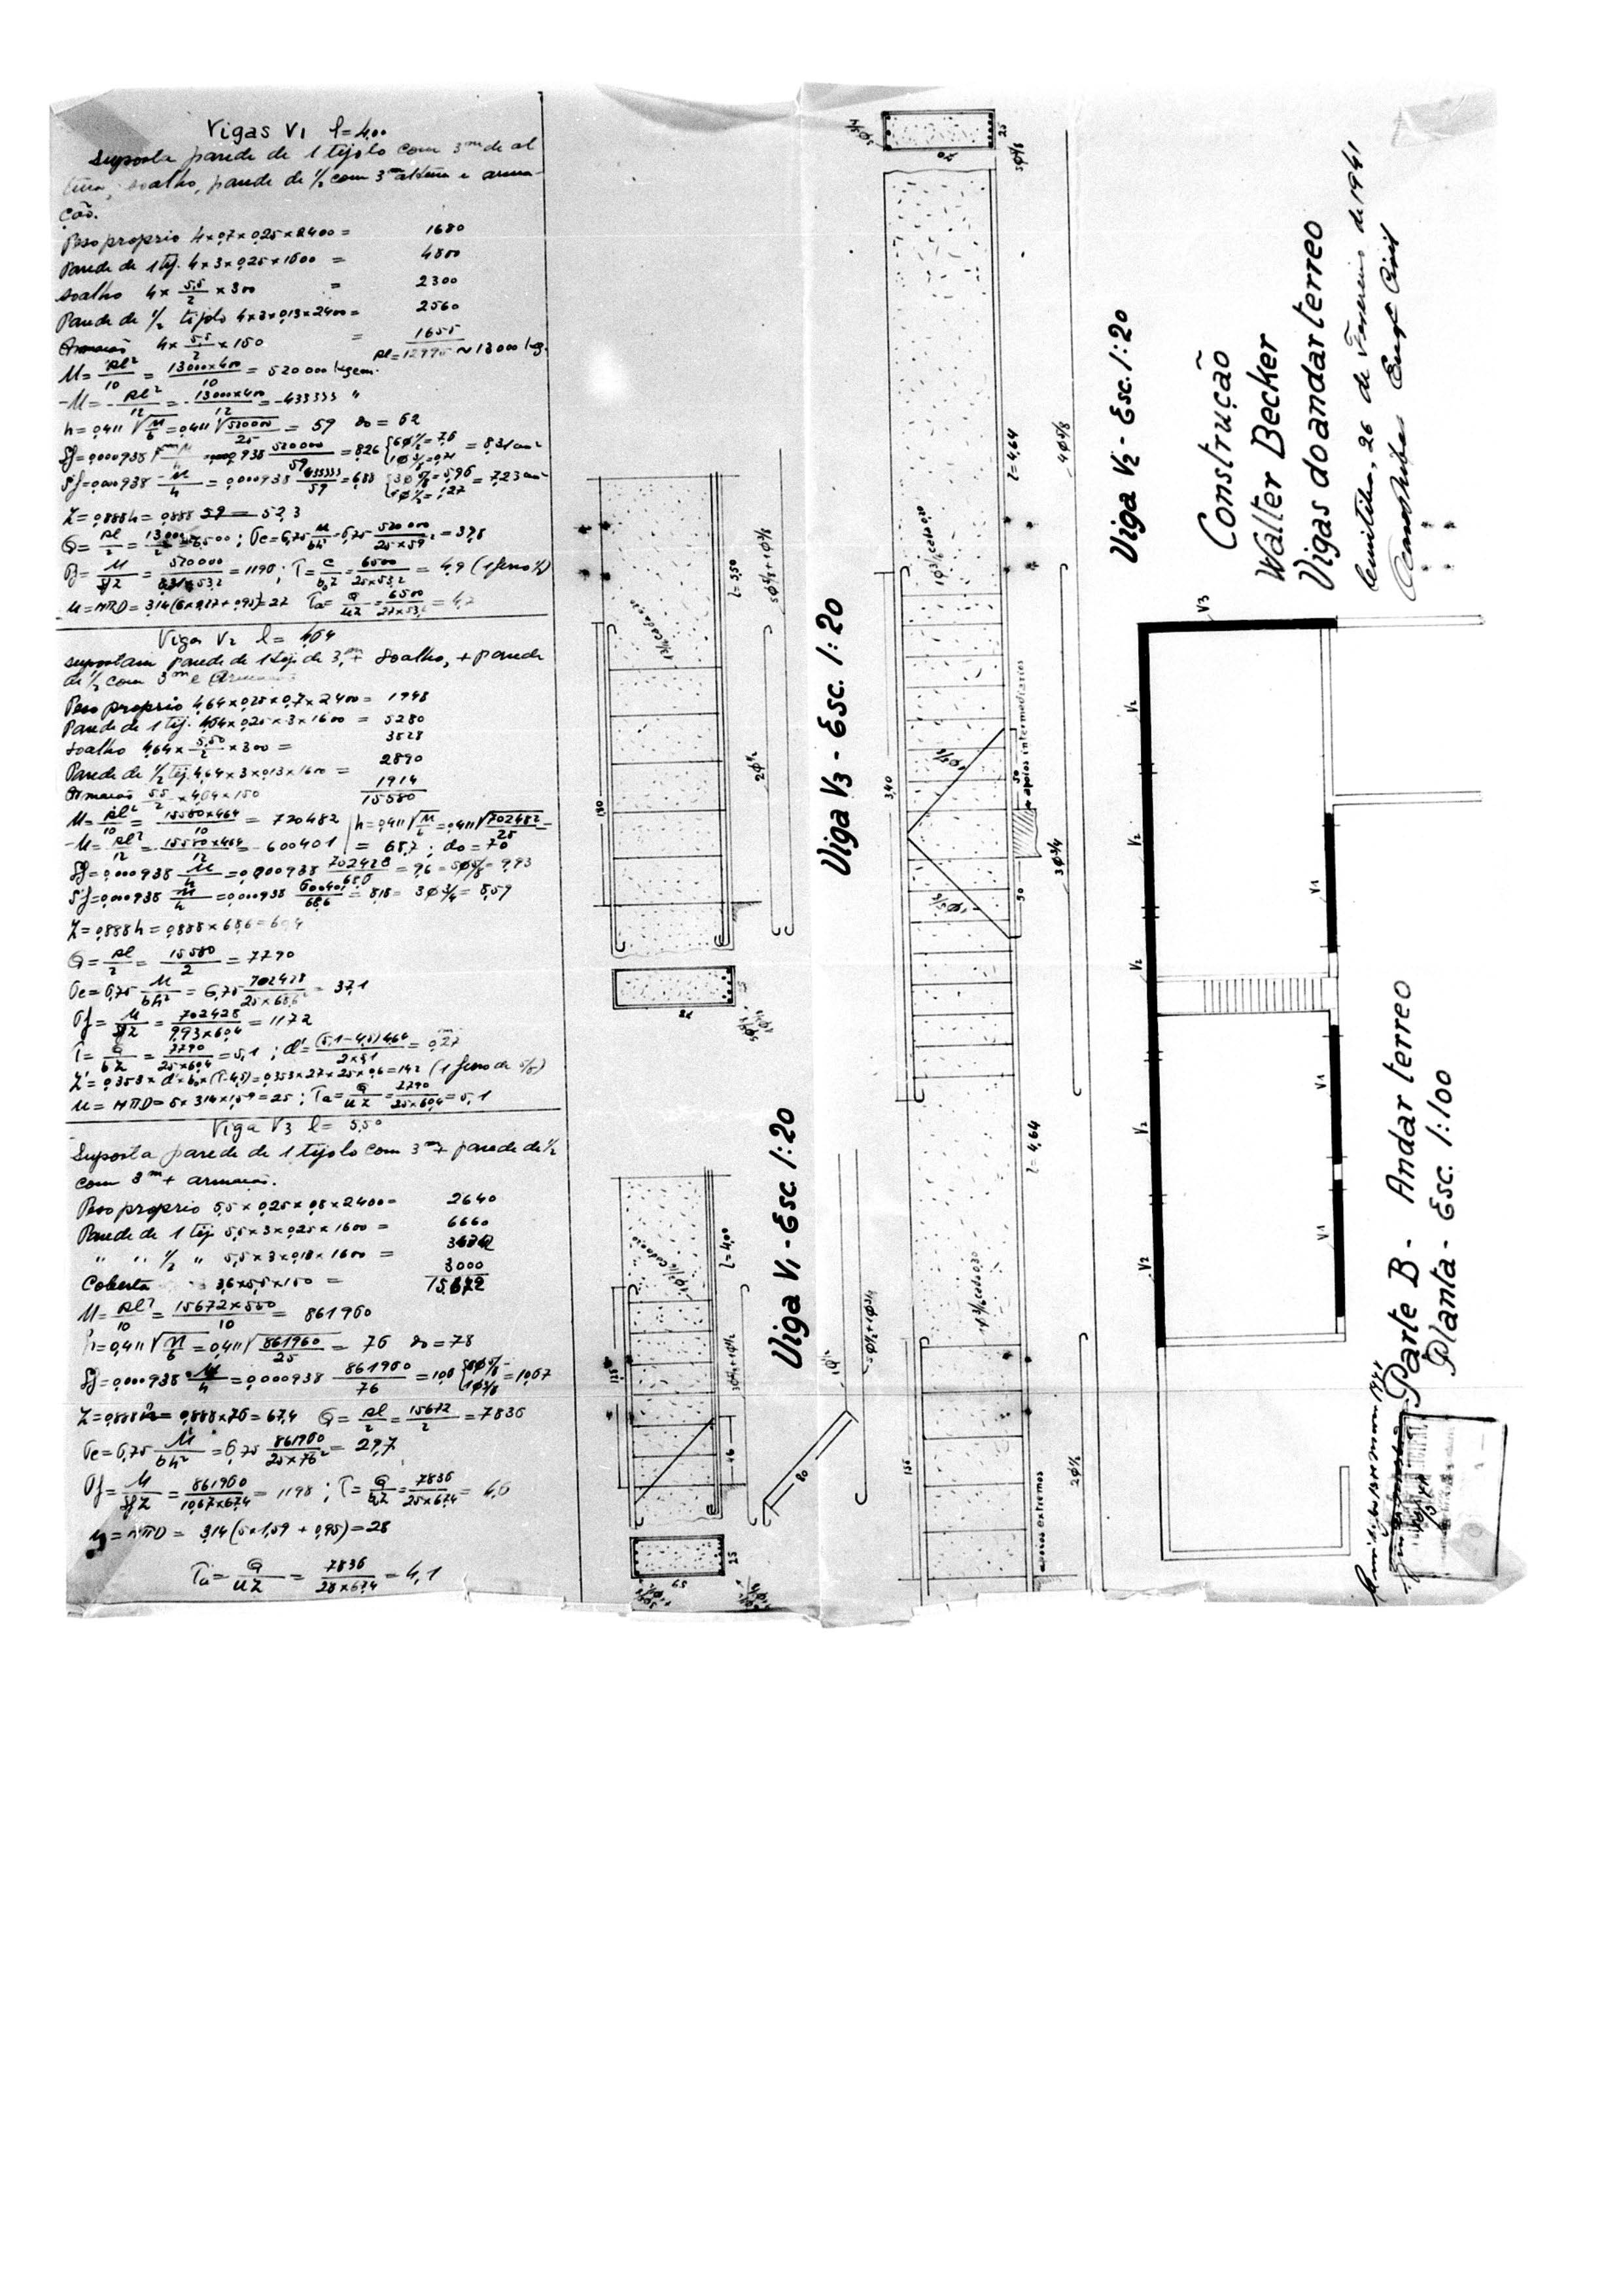 Vigas V1 l=4,00
Suposta parede de 1 tijolo com 3m de al
tura, soalho, parede de ½ com 3m altura e arma-
ção.
Peso proprio 4×0,7×0,25×2400 = 1680
Parede de 1 tij. 4×3×0,25×1600 = 4800
soalho 4× 5,5/2 ×300 = 2300
Parede de ½ tijolo 4×3×0,13×2400 = 2560
Armação 4× 5,5/2 ×150 = 1655
pl=12995 ~ 13000 kg.
M= pl²/10 = 13000×400/10 = 520000 kgcm.
-M= pl²/12 = 13000×400/12 = -433333 "
h=0,411√M/b =0,411√520000/25 = 59 do = 62
Sf=0,000938 520000/59 =8,26 {6Ø½=7,6 1Ø3/8=0,71 = 8,31cm²
S'f=0,000938 -M/h =0,000938 433333/59 =6,88 {3Ø5/8=5,96 1Ø½=1,27 = 7,23cm²
Z=0,888h=0,888 59 = 52,3
Q= pl/2 = 13000/2 =6500 ; σc=6,75 M/bh² =6,75 520000/25×59² =37,8
σf= M/SfZ = 520000/8,31×53,2 =1190 ; T= 6500/25×53,2 = 4,9 (1 ferro ½)
u=nπD=3,14(6×1,27+0,95)=27 Ta= Q/uZ = 6500/27×53,2 = 4,7
Viga V2 l= 4,64
supostam parede de 1 tijº de 3,m+ soalho, + parede
de ½ com 3m e Armação
Peso proprio 4,64×0,25×0,7×2400 = 1948
Parede de 1 tij. 4,64×0,25×3×1600 = 5280
soalho 4,64× 5,50/2 ×300 = 3828
Parede de ½ tij. 4,64×3×0,13×1600 = 2890
Armação 5,5/2 ×4,64×150 1914
15580
M= pl²/10 = 15580×464/10 = 720482 h=0,411√M/b =0,411√702482/25 =
-M= pl²/12 = 15580×464/12 = -600401 = 68,7 ; do = 70
Sf=0,000938 M/h =0,000938 702428/68,6 = 9,6 = 5Ø5/8= 9,93
S'f=0,000938 M/h =0,000938 600401/68,6 = 8,18= 3Ø¾= 8,59
Z=0,888h=0,888×68,6=60,4
Q= pl/2 = 15580/2 = 7790
σc=6,75 M/bh² = 6,75 702428/25×68,6² = 37,1
σf= M/SfZ = 702428/9,93×60,4 = 1172
T= Q/bZ = 7790/25×60,4 =5,1 ; d'= (5,1-4,5)464/2×5,1 = 0,27m
Z'=0,353×d'×bo×(T-4,5)=0,353×27×25×0,6=142 (1 ferro de 5/8)
u= nπD=5×3,14×1,59=25 ; Ta= Q/uZ = 7790/25×60,4 =5,1
Viga V3 l= 5,50
Suposta parede de 1 tijolo com 3m+ parede de ½
com 3m+ armação.
Peso proprio 5,5×0,25×0,8×2400= 2640
Parede de 1 tij 5,5×3×0,25×1600= 6660
" " ½ " 5,5×3×0,13×1600= 3432
Coberta 3,6×5,5×150 = 3000
15672
M= pl²/10 = 15672×550/10 = 861960
h=0,411√M/b =0,411√861960/25 = 76 do=78
Sf=0,000938 M/h =0,000938 861960/76 =10,6 {5Ø5/8 1Ø3/8 =10,67
Z=0,888h= 0,888×76=67,4 Q= pl/2 = 15672/2 =7836
σc=6,75 M/bh² =6,75 861960/25×76² = 29,7
σf= M/SfZ = 861960/10,67×67,4 = 1198 ; T= Q/bZ = 7836/25×67,4 = 4,6
u=nπD = 3,14(5×1,59 + 0,95)=28
Ta= Q/uZ = 7836/28×67,4 =4,1
l=5,50
5Ø5/8+1Ø3/8
2Ø½
1,80
Viga V3 - Esc. 1:20
l=4,00
1,25
3Ø5/8+1Ø½
46
65
25
80
1Ø½
5Ø½+1Ø3/8
Viga V1 - Esc 1:20
3Ø¾
70
25
5Ø5/8
1Ø3/16 cada 0,20
l=4,64
4Ø5/8
3,40
1Ø5/8
1Ø5/8
50
50
apoios intermediarios
3Ø¾
l=4,64
1Ø3/16 cada 0,30
1,36
apoios extremos
2Ø½
Viga V2 - Esc. 1:20
Construcção
Walter Becker
Vigas do andar terreo
26 de Fevereiro de 1941
Engº Civil
V3
V2
V2
V2
V2
V2
V1
V1
V1
Parte B - Andar terreo
Planta - Esc. 1:100